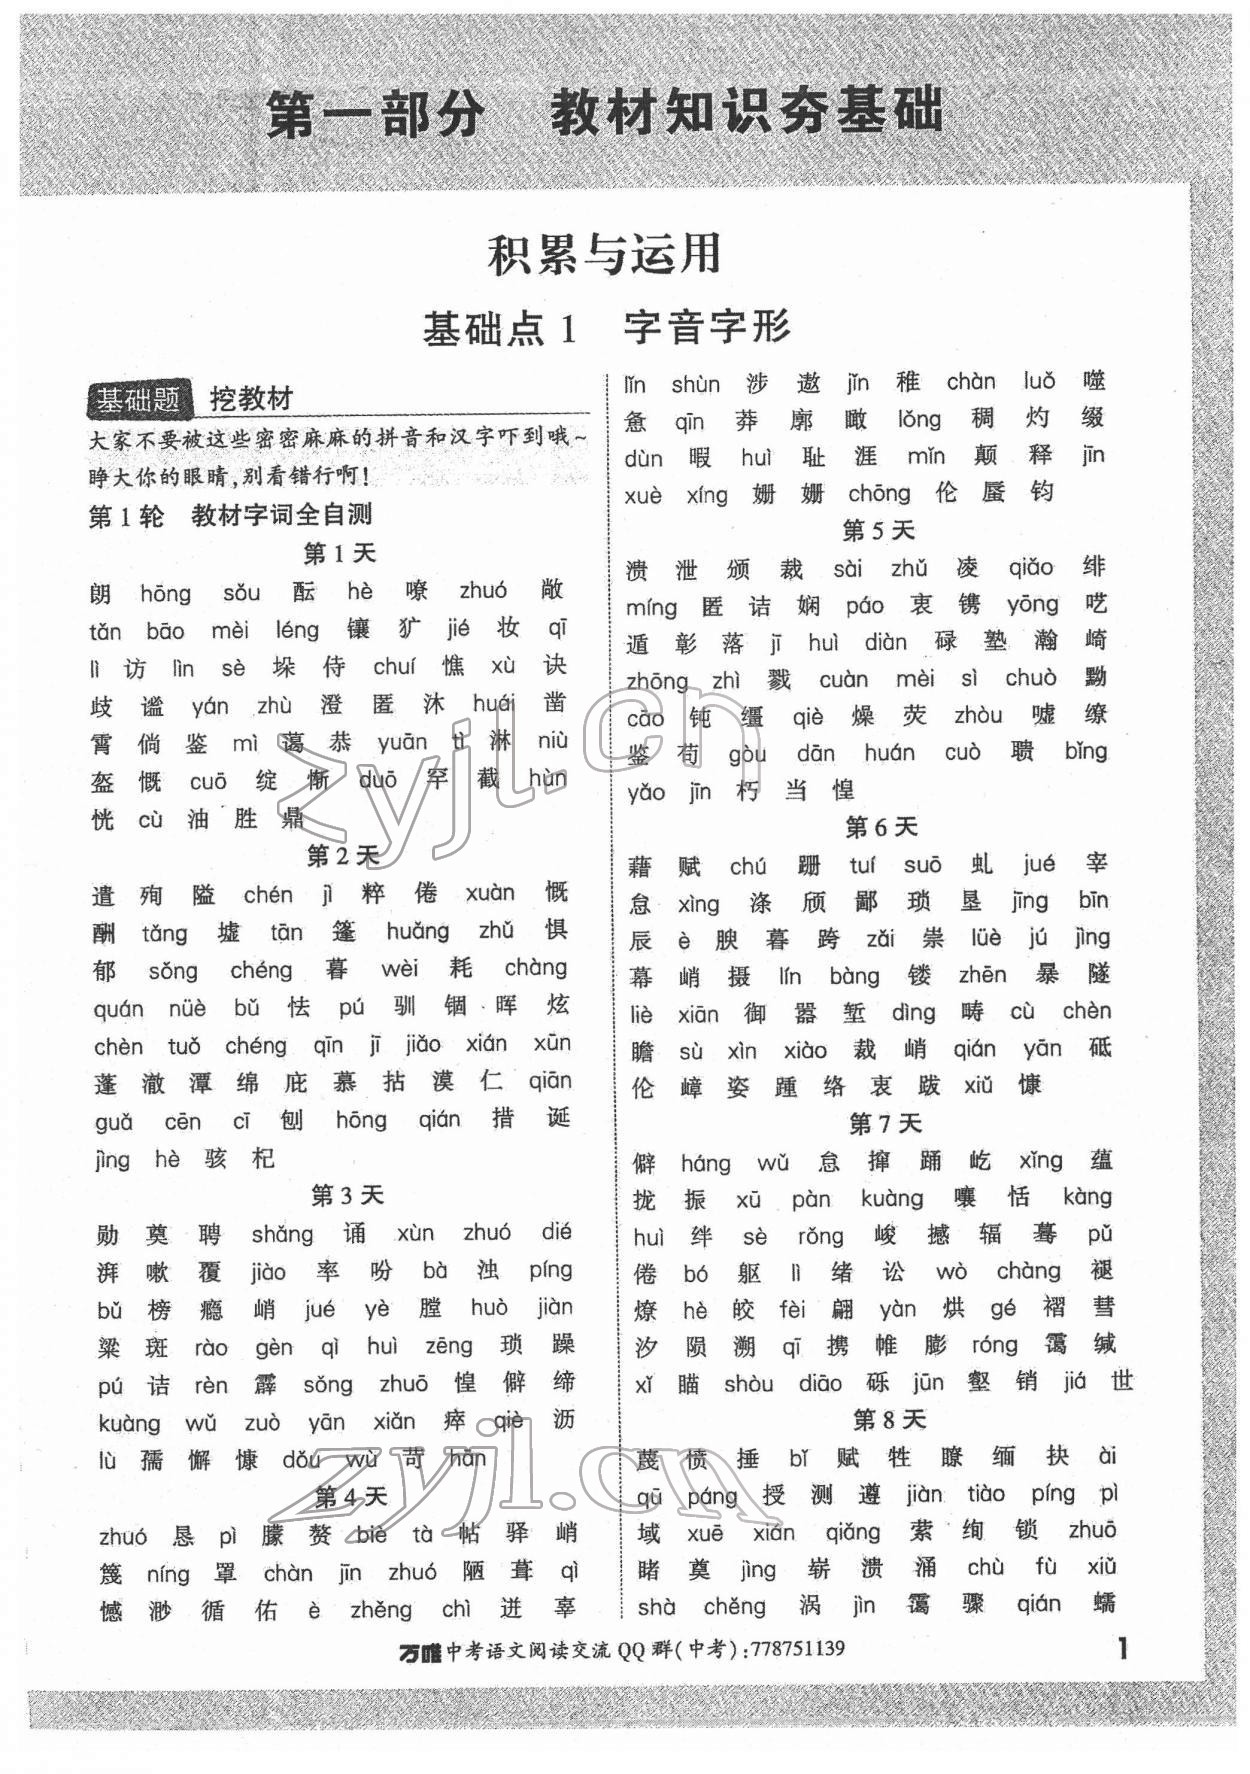 第一部分 教材知识夯基础
积累与运用
基础点1 字音字形
基础题 挖教材
大家不要被这些密密麻麻的拼音和汉字吓到哦~
睁大你的眼睛,别看错行啊!
第1轮 教材字词全自测
第1天
朗 hōng sǒu 酝 hè 嘹 zhuó 敞
tǎn bāo mèi léng 镶 犷 jié 妆 qī
lì 访 lìn sè 垛 侍 chuí 憔 xù 诀
歧 谧 yán zhù 澄 匿 沐 huái 凿
霄 倘 鉴 mì 蔼 恭 yuān tì 淋 niù
盔 慨 cuō 绽 惭 duō 罕 截 hùn
恍 cù 油 胜 鼎
第2天
遣 殉 隘 chén jì 粹 倦 xuàn 慨
酬 tǎng 墟 tān 篷 huǎng zhǔ 惧
郁 sǒng chéng 暮 wèi 耗 chàng
quán nüè bǔ 怯 pú 驯 锢 晖 炫
chèn tuǒ chéng qīn jī jiǎo xián xūn
蓬 澈 潭 绵 庇 慕 拈 漠 仁 qiān
guǎ cēn cī 刨 hōng qián 措 诞
jìng hè 骇 杞
第3天
勋 奠 聘 shǎng 诵 xùn zhuó dié
湃 嗽 覆 jiào 率 吩 bà 浊 píng
bǔ 榜 瘾 峭 jué yè 膛 huò jiàn
粱 斑 rào gèn qì huì zēng 琐 躁
pú 诘 rèn 霹 sǒng zhuō 惶 僻 缔
kuàng wǔ zuò yān xiǎn 瘁 qiè 沥
lù 孺 懈 慷 dǒu wù 苛 hān
第4天
zhuó 恳 pì 朦 赘 biè tà 帖 驿 峭
篾 níng 罩 chàn jīn zhuó 陋 葺 qì
憾 渺 循 佑 è zhěng chì 迸 辜
lǐn shùn 涉 遨 jǐn 稚 chàn luǒ 噬
惫 qīn 莽 廓 瞰 lǒng 稠 灼 缀
dùn 暇 huì 耻 涯 mǐn 颠 释 jīn
xuè xíng 姗 姗 chōng 伦 蜃 钧
第5天
溃 泄 颁 裁 sài zhǔ 凌 qiǎo 绯
míng 匿 诘 娴 páo 衷 镌 yōng 呓
遁 彰 落 jī huì diàn 碌 塾 瀚 崎
zhōng zhì 戮 cuàn mèi sì chuò 黝
cāo 钝 缰 qiè 燥 荧 zhòu 嘘 缭
鉴 苟 gòu dān huán cuò 聩 bǐng
yǎo jīn 朽 当 惶
第6天
藉 赋 chú 跚 tuí suō 虬 jué 宰
怠 xìng 涤 颀 鄙 琐 垦 jīng bīn
辰 è 腴 暮 跨 zǎi 祟 lüè jú jìng
幕 峭 摄 lín bàng 镂 zhēn 暴 隧
liè xiān 御 嚣 堑 dìng 畴 cù chèn
瞻 sù xìn xiào 裁 峭 qián yān 砥
伦 嶂 姿 踵 络 衷 跋 xiǔ 慷
第7天
僻 háng wǔ 怠 撺 踊 屹 xǐng 蕴
拢 振 xū pàn kuàng 嚷 恬 kàng
huì 绊 sè rǒng 峻 撼 辐 蓦 pǔ
倦 bó 躯 lì 绪 讼 wò chàng 褪
燎 hè 皎 fèi 翩 yàn 烘 gé 褶 彗
汐 陨 溯 qī 携 帷 膨 róng 霭 缄
xǐ 瞄 shòu diāo 砾 jūn 壑 销 jiá 世
第8天
蔑 愤 捶 bǐ 赋 牲 瞭 缅 抉 ài
qū páng 授 测 遵 jiàn tiào píng pì
域 xuē xián qiǎng 萦 绚 锁 zhuō
睹 奠 jìng 崭 溃 涌 chù fù xiǔ
shà chěng 涡 jìn 霭 骤 qián 蠕
万唯中考语文阅读交流QQ群(中考):778751139
1
zyjl.cn
zyjl.cn